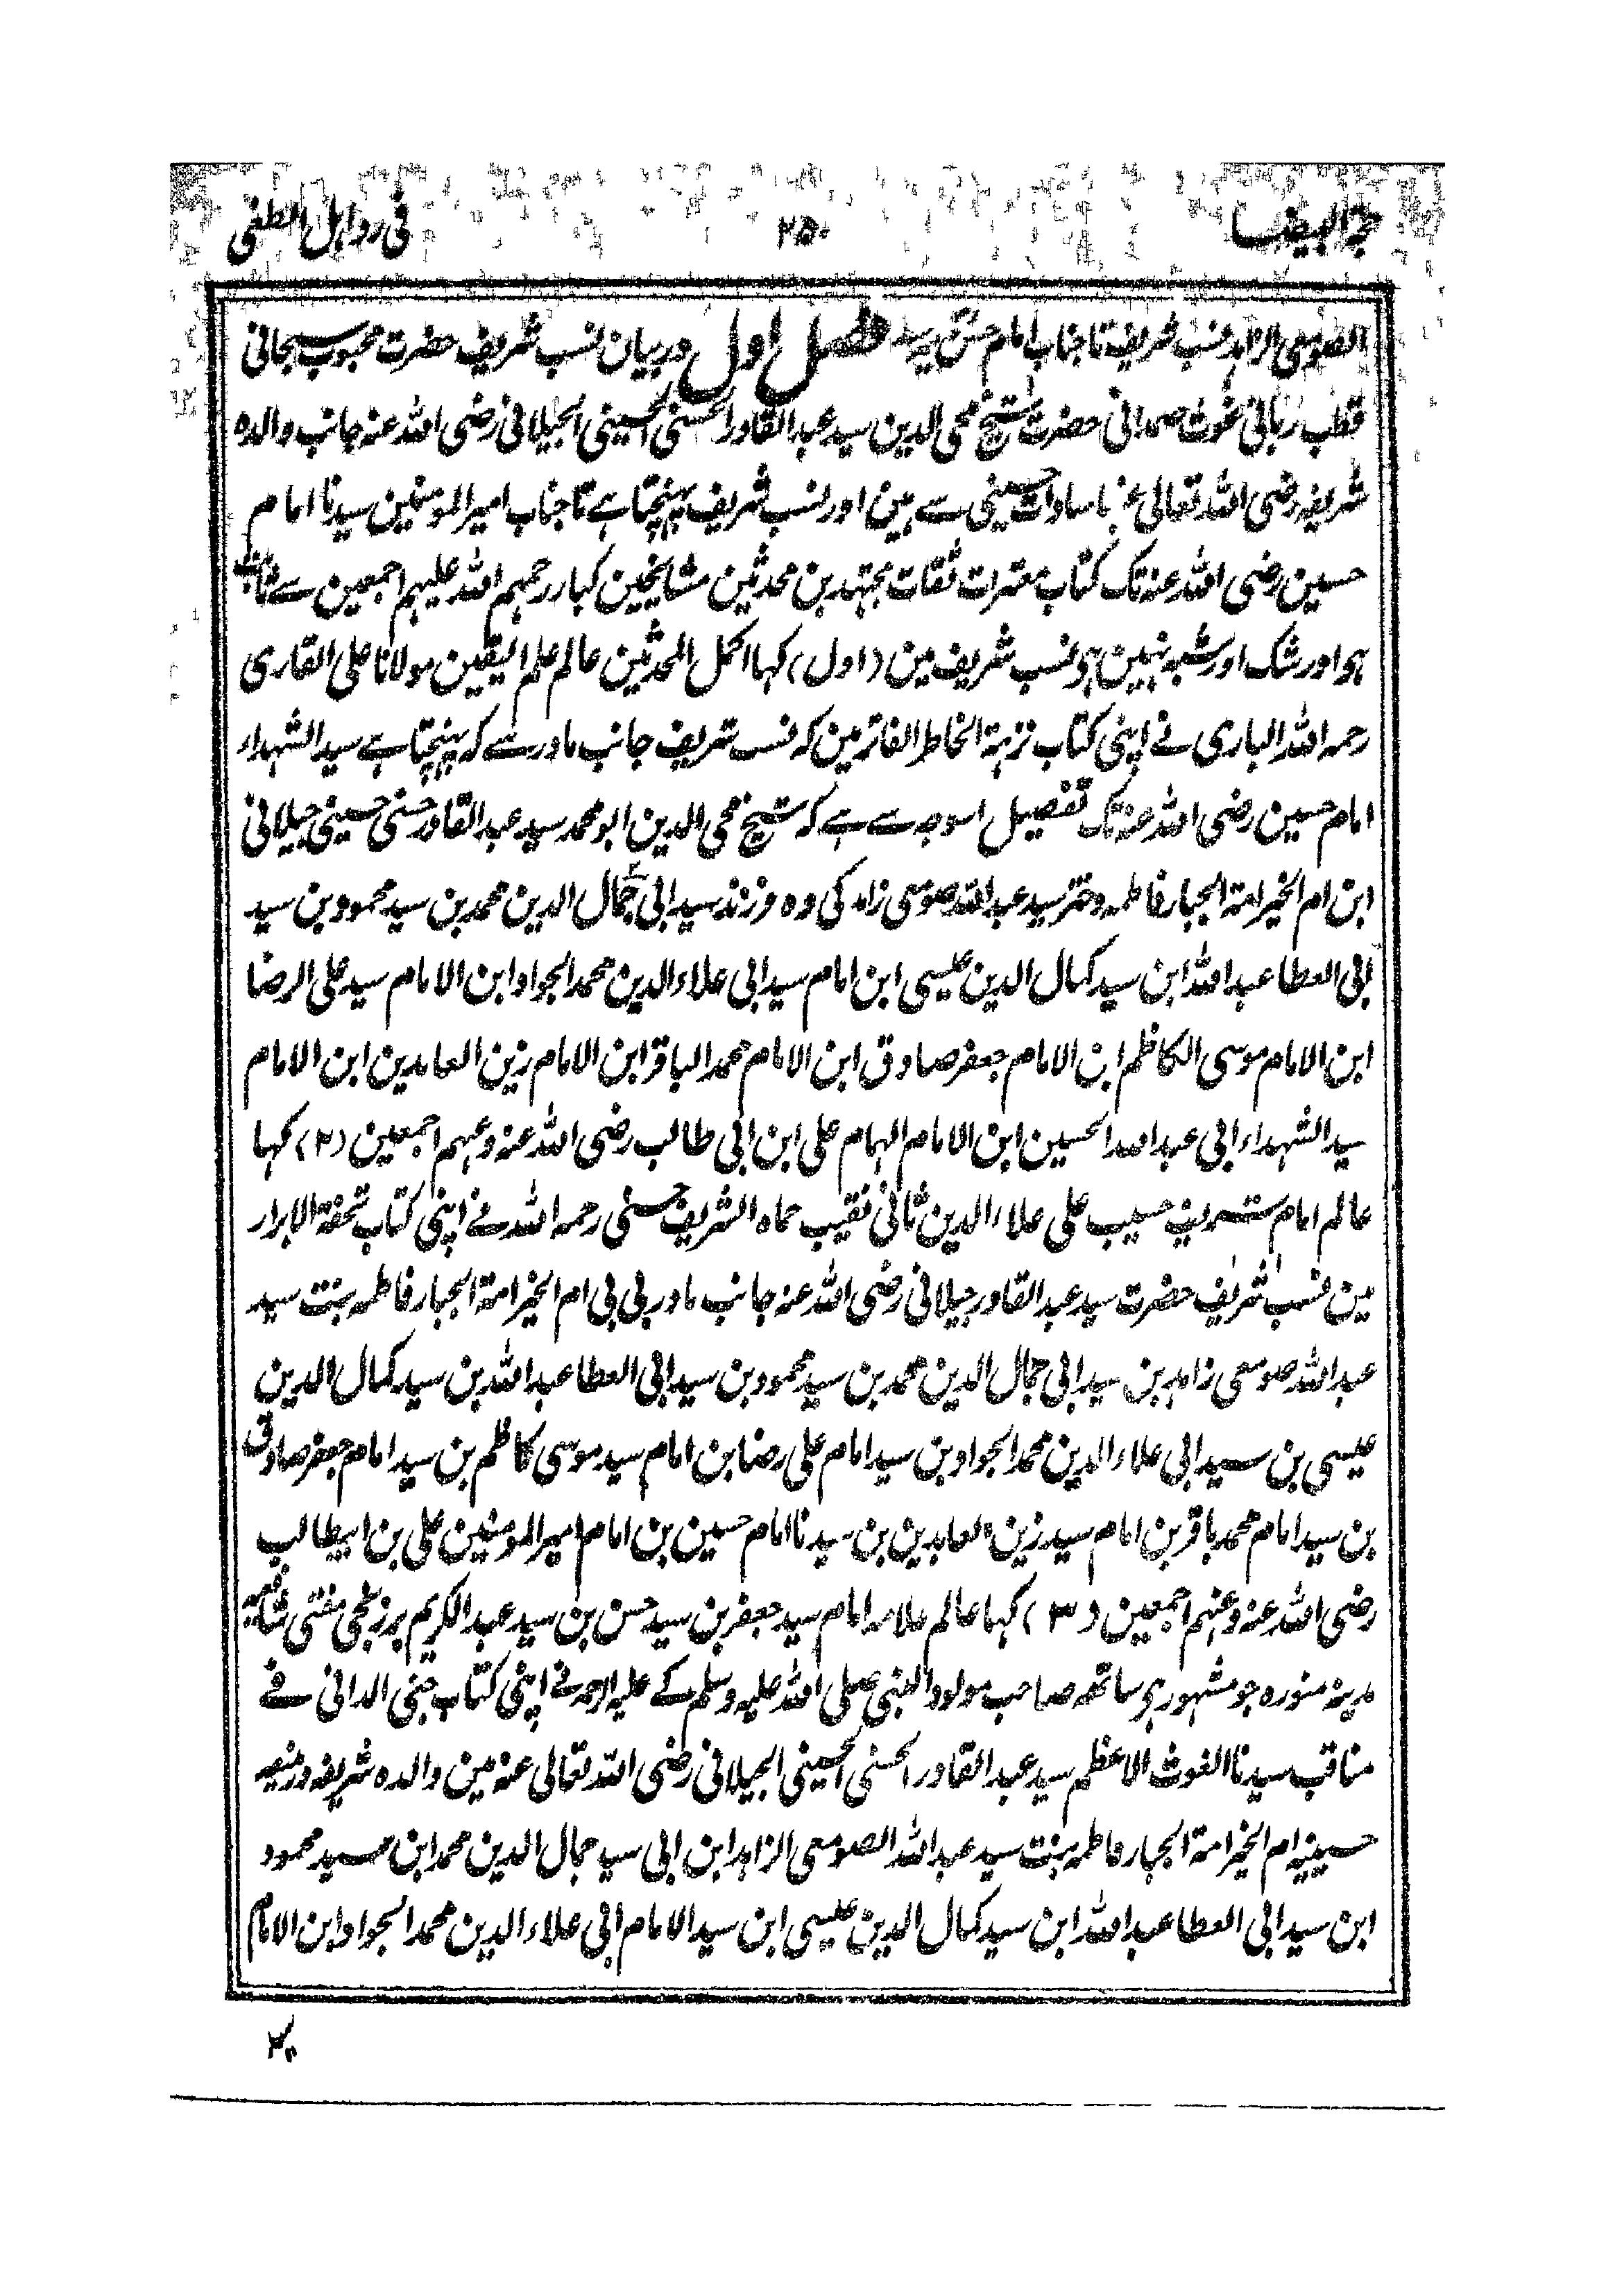 حجۃ البیضا ۲۵۰ فی رد اہل الطغی
الصومعی الزاہد نسب شریف تا جناب امام فصل اول در بیان نسب شریف حضرت محبوب سبحانی
قطب ربانی غوث صمدانی حضرت شیخ محی الدین سید عبد القادر الحسنی الحسینی الجیلانی رضی اللہ عنہ جانب والدہ
شریفہ رضی اللہ تعالی عنہا سادات حسینی سے ہین اور نسب شریف پہنچتا ہے تا جناب امیر المومنین سیدنا امام
حسین رضی اللہ عنہ تک کتاب معتبرات ثقات مجتہدین محدثین مشایخین کبار رحمہم اللہ علیہم اجمعین سے ثابت
ہو اور شک اور شبہ نہین ہی نسب شریف مین (اول) کہا اکمل المحدثین عالم علم الیقین مولانا علی القاری
رحمہ اللہ الباری نے اپنی کتاب نزہۃ الخاطر الفاتر مین کہ نسب شریف جانب مادر سے کہ پہنچتا ہے سید الشہداء
امام حسین رضی اللہ عنہ تک تفصیل اسوجہ سے ہے کہ شیخ محی الدین ابو محمد سید عبد القادر حسنی حسینی جیلانی
ابن ام الخیر امۃ الجبار فاطمہ دختر سید عبد اللہ صومعی زاہد کی وہ فرزند سید ابی جمال الدین محمد بن سید محمود بن سید
ابی العطا عبد اللہ ابن سید کمال الدین عیسی ابن امام سید ابی علاء الدین محمد الجواد ابن الامام سید علی الرضا
ابن الامام موسی الکاظم ابن الامام جعفر صادق ابن الامام محمد الباقر ابن الامام زین العابدین ابن الامام
سید الشہداء ابی عبد اللہ الحسین ابن الامام الہمام علی ابن ابی طالب رضی اللہ عنہ وعنہم اجمعین (۲) کہا
عالم امام شریف حسیب علی علاء الدین ثانی نقیب حماہ الشریف حسنی رحمہ اللہ نے اپنی کتاب تحفۃ الابرار
مین نسب شریف حضرت سید عبد القادر جیلانی رضی اللہ عنہ جانب مادر بی بی ام الخیر امۃ الجبار فاطمہ بنت سید
عبد اللہ صومعی زاہد بن سید ابی جمال الدین محمد بن سید محمود بن سید ابی العطا عبد اللہ بن سید کمال الدین
عیسی بن سید ابی علاء الدین محمد الجواد بن سید امام علی رضا بن امام سید موسی کاظم بن سید امام جعفر صادق
بن سید امام محمد باقر بن امام سید زین العابدین بن سیدنا امام حسین بن امام امیر المومنین علی بن ابیطالب
رضی اللہ عنہ وعنہم اجمعین (۳) کہا عالم علامہ امام سید جعفر بن سید حسن بن سید عبد الکریم برزنجی مفتی شافعیہ
مدینہ منورہ جو مشہور ہی ساتھہ صاحب مولود النبی صلی اللہ علیہ وسلم کے علیہ الرحمہ نے اپنی کتاب جنی الدانی فے
مناقب سیدنا الغوث الاعظم سید عبد القادر الحسنی الحسینی الجیلانی رضی اللہ تعالی عنہ مین والدہ شریفہ
حسینیہ ام الخیر امۃ الجبار فاطمہ بنت سید عبد اللہ الصومعی الزاہد ابن ابی سید جمال الدین محمد ابن سید محمود
ابن سید ابی العطا عبد اللہ ابن سید کمال الدین عیسی ابن سید الامام ابی علاء الدین محمد الجواد ابن الامام